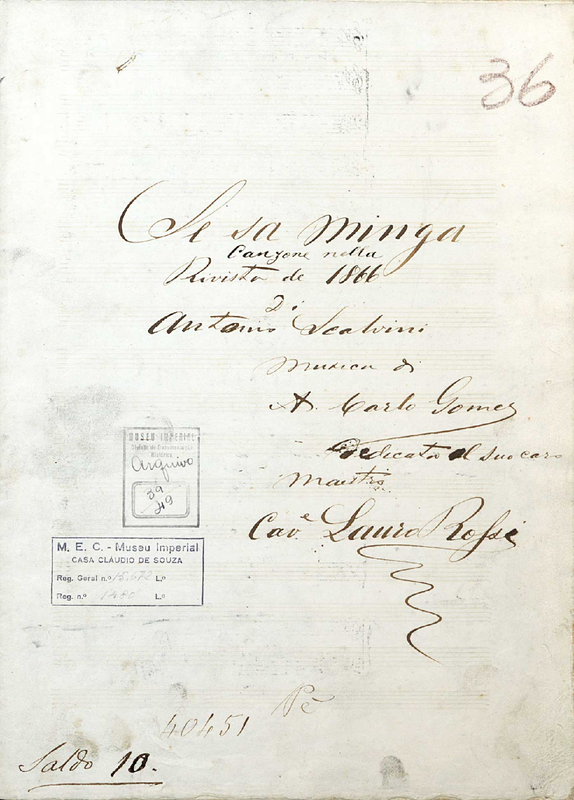 36
Se sa minga
Canzone nella
Rivista de 1866
Di
Antonio Scalvini
Musica di
A. Carlo Gomes
Dedicata al suo caro
maestro
Cav.e Lauro Rossi
MUSEU IMPERIAL
Divisão de Documentação
Histórica
Arquivo
M. E. C. - Museu Imperial
CASA CLÁUDIO DE SOUZA
Reg. Geral n.º 15.672 L.º
Reg. n.º L.º
40451
Saldo 10.